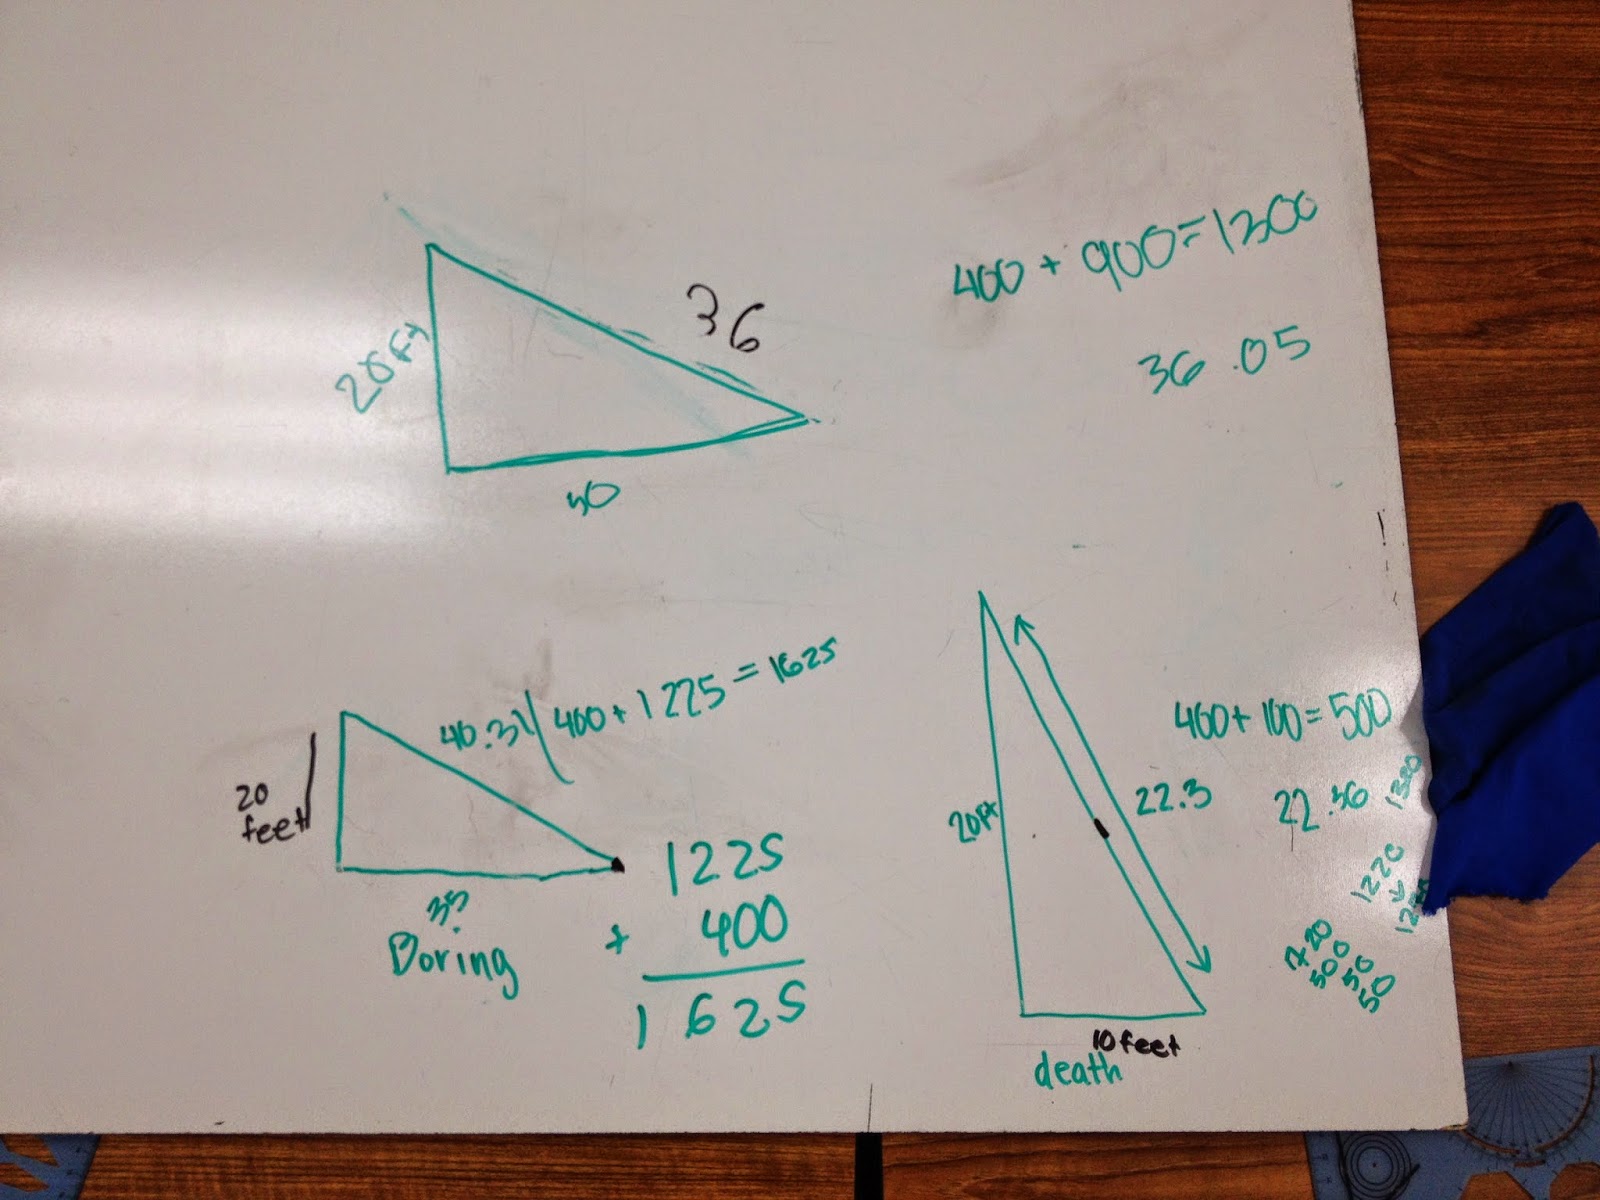 20 Ft
36
30
400 + 900 = 1300
36.05
20
feet
40.31
400 + 1225 = 1625
35
Boring
1225
+ 400
1625
20 Ft
22.3
10 feet
death
400 + 100 = 500
22.36
1300
1220
720
500
50
50